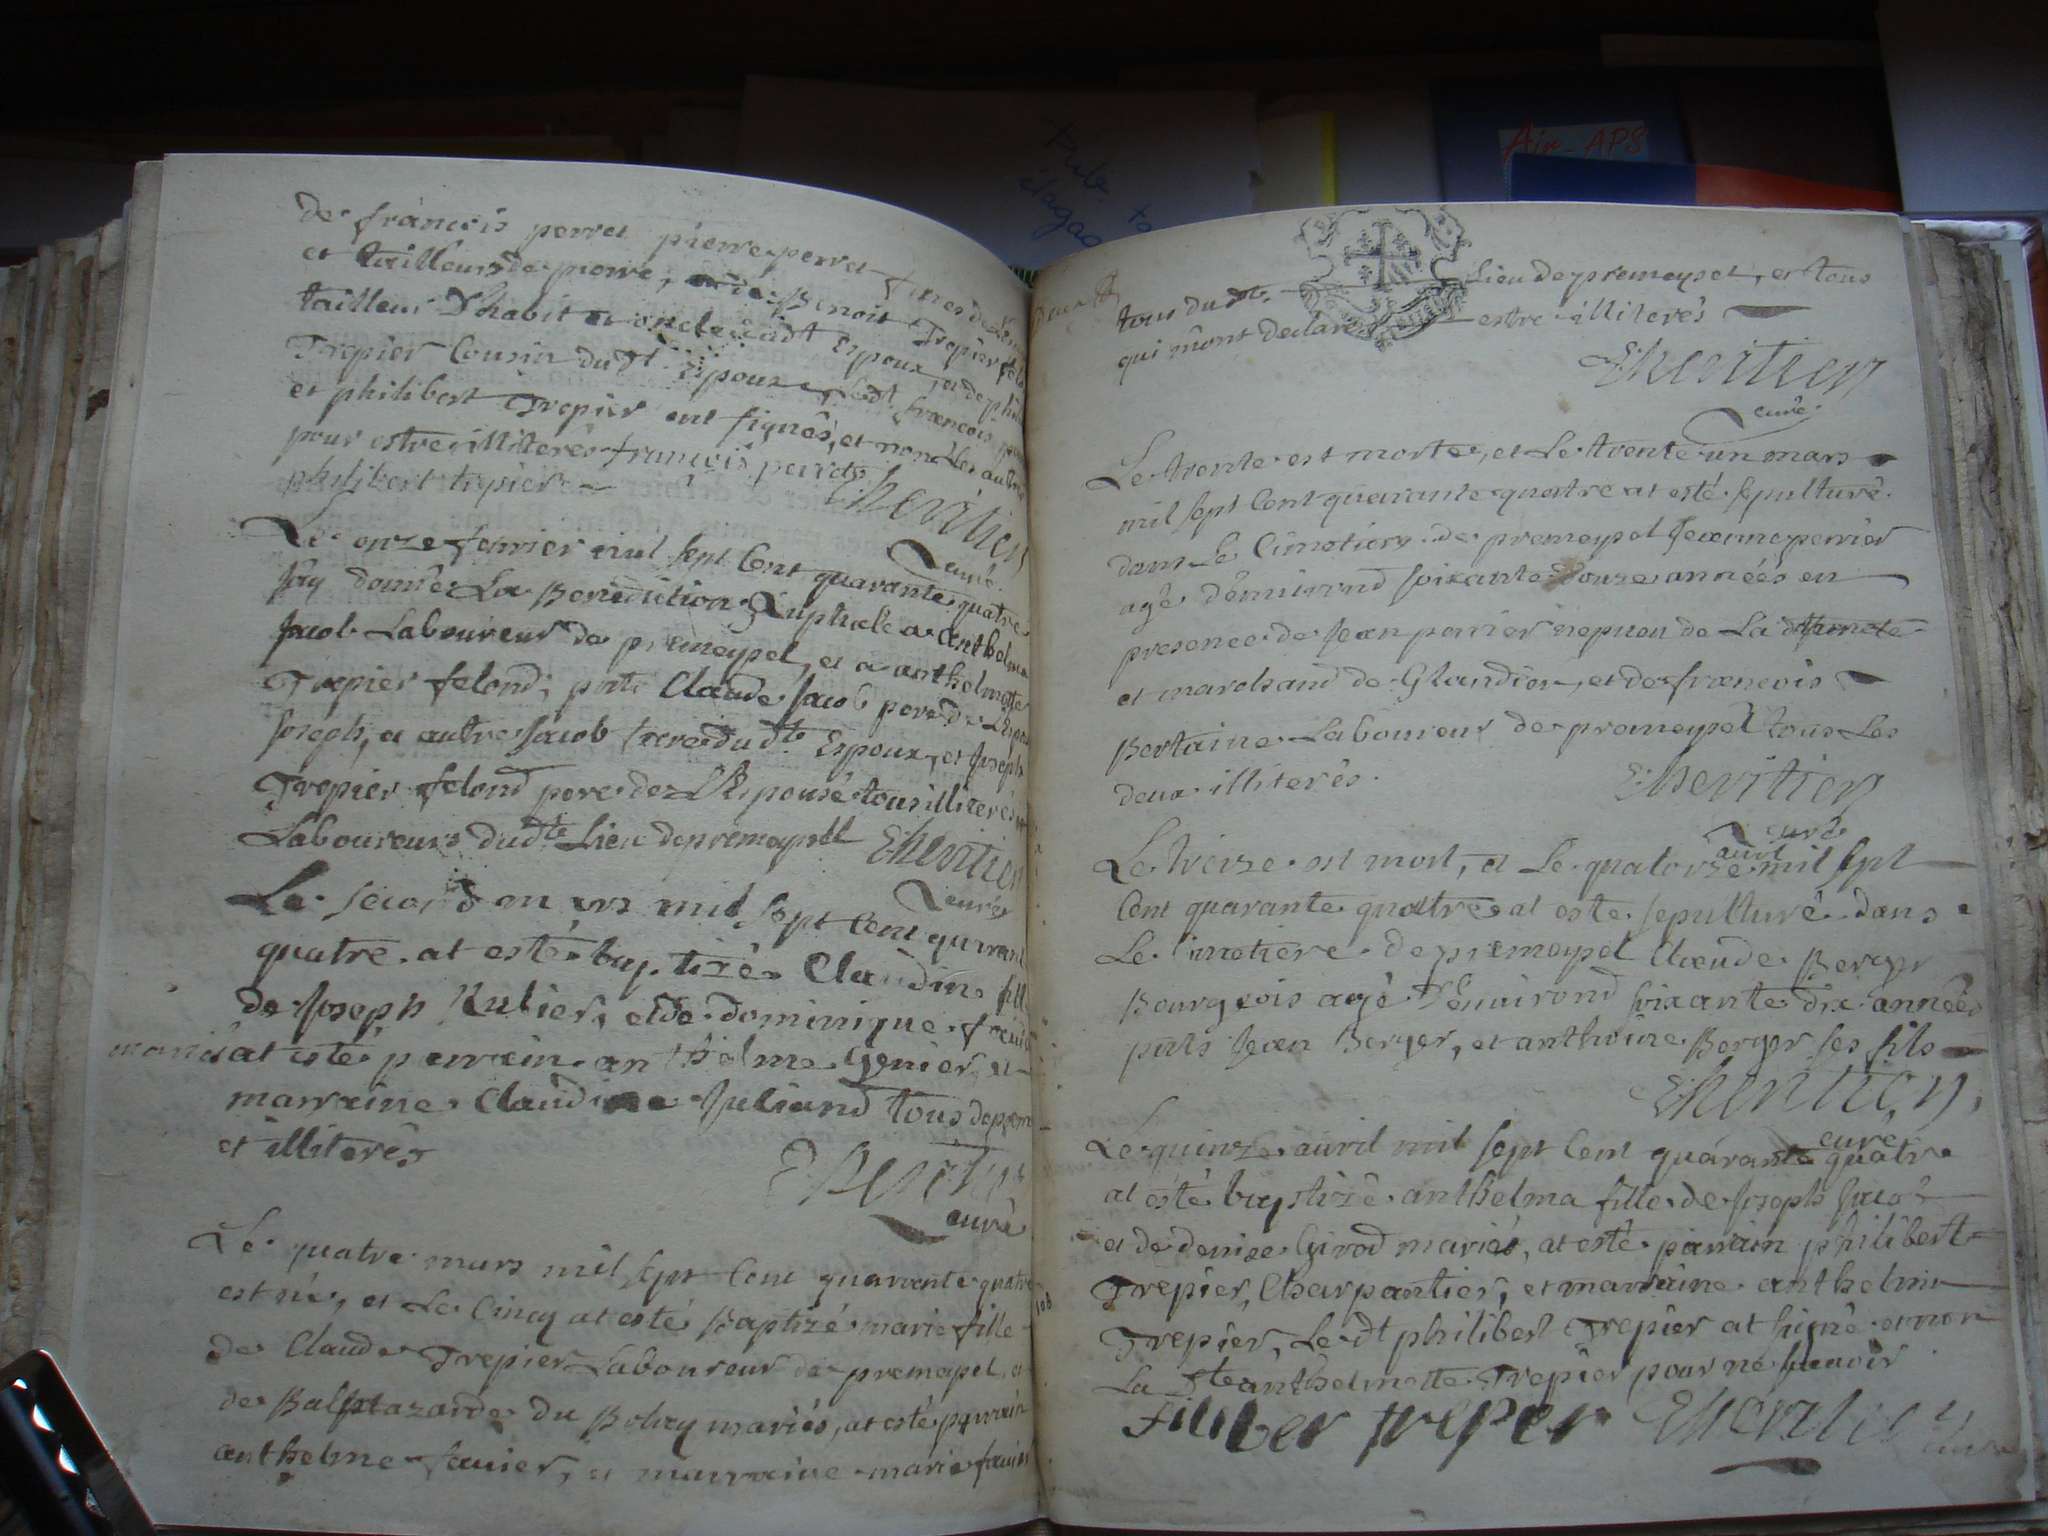 Air APS
de francois perret pierre perret freres de
et tailleurs de pierre, Benoit Trepier
tailleur Dhabit et oncle dudt Espoux, et de
Trepier Cousin dudt Espoux, Ledt francois
et philibert Trepier ont signés, et non Les autres
pour estre illiterés francois perret
philibert trepier Ehevitier
curé
Le onze fevrier mil sept Cent quarante quatre
Jay donnée La Benediction Nuptiale a anthelme
Jacob Laboureur de premeysel, et a anthelmette
Trepier felond, pnts Claude Jacob pere de
Joseph, et autre Jacob frere dudt Espoux, et Joseph
Trepier felond pere de L'Epouse tous illiterés
Laboureurs dudt Lieu de premeysel Ehevitier
curé
Le second mars mil sept Cent quarante
quatre at esté baptizée Claudine fille
de Joseph Rubier, et de dominique
mariés at esté parrain anthelme Genier, et
marraine Claudine Juliand tous de
et illiterés
Ehevitier
curé
Le quatre mars mil sept Cent quarante quatre
est née, et Le Cinq at esté Baptizé marie fille
de Claude Trepier Laboureur de premeysel, et
de Baltazarde du Bohey mariés, at esté parrain
anthelme favier, et marraine marie favier
108
tous dudt Lieu de premeysel, et tous
qui m'ont declaré estre illiterés
Ehevitier
curé
Le trente est morte, et Le trente un mars
mil sept Cent quarante quatre at esté sepulturé
dans Le Cimetiere de premeysel Jeanne perrier
agé d'environd soixante douze années en
presence de Jean perrier nepveu de La ditte
et marchand de Glandieu, et de francois
Bertaine Laboureur de premeysel tous Les
deux illiterés.
Ehevitier
curé
Le treize est mort, et Le quatorze avril mil sept
Cent quarante quatre at esté sepulturé dans
Le Cimetiere de premeysel Claude Berger
Bourgeois agé d'environd soixante dix années
pnts Jean Berger, et anthoine Berger ses fils
Ehevitier
curé
Le quinze avril mil sept Cent quarante quatre
at esté baptizé anthelma fille de Joseph Jacob
et de denise Girod mariés, at esté parrain philibert
Trepier, Charpantier, et marraine anthelme
Trepier, Le dt philibert Trepier at signé et non
La dte anthelmette Trepier pour ne scavoir
filiber treper Ehevitier
curé